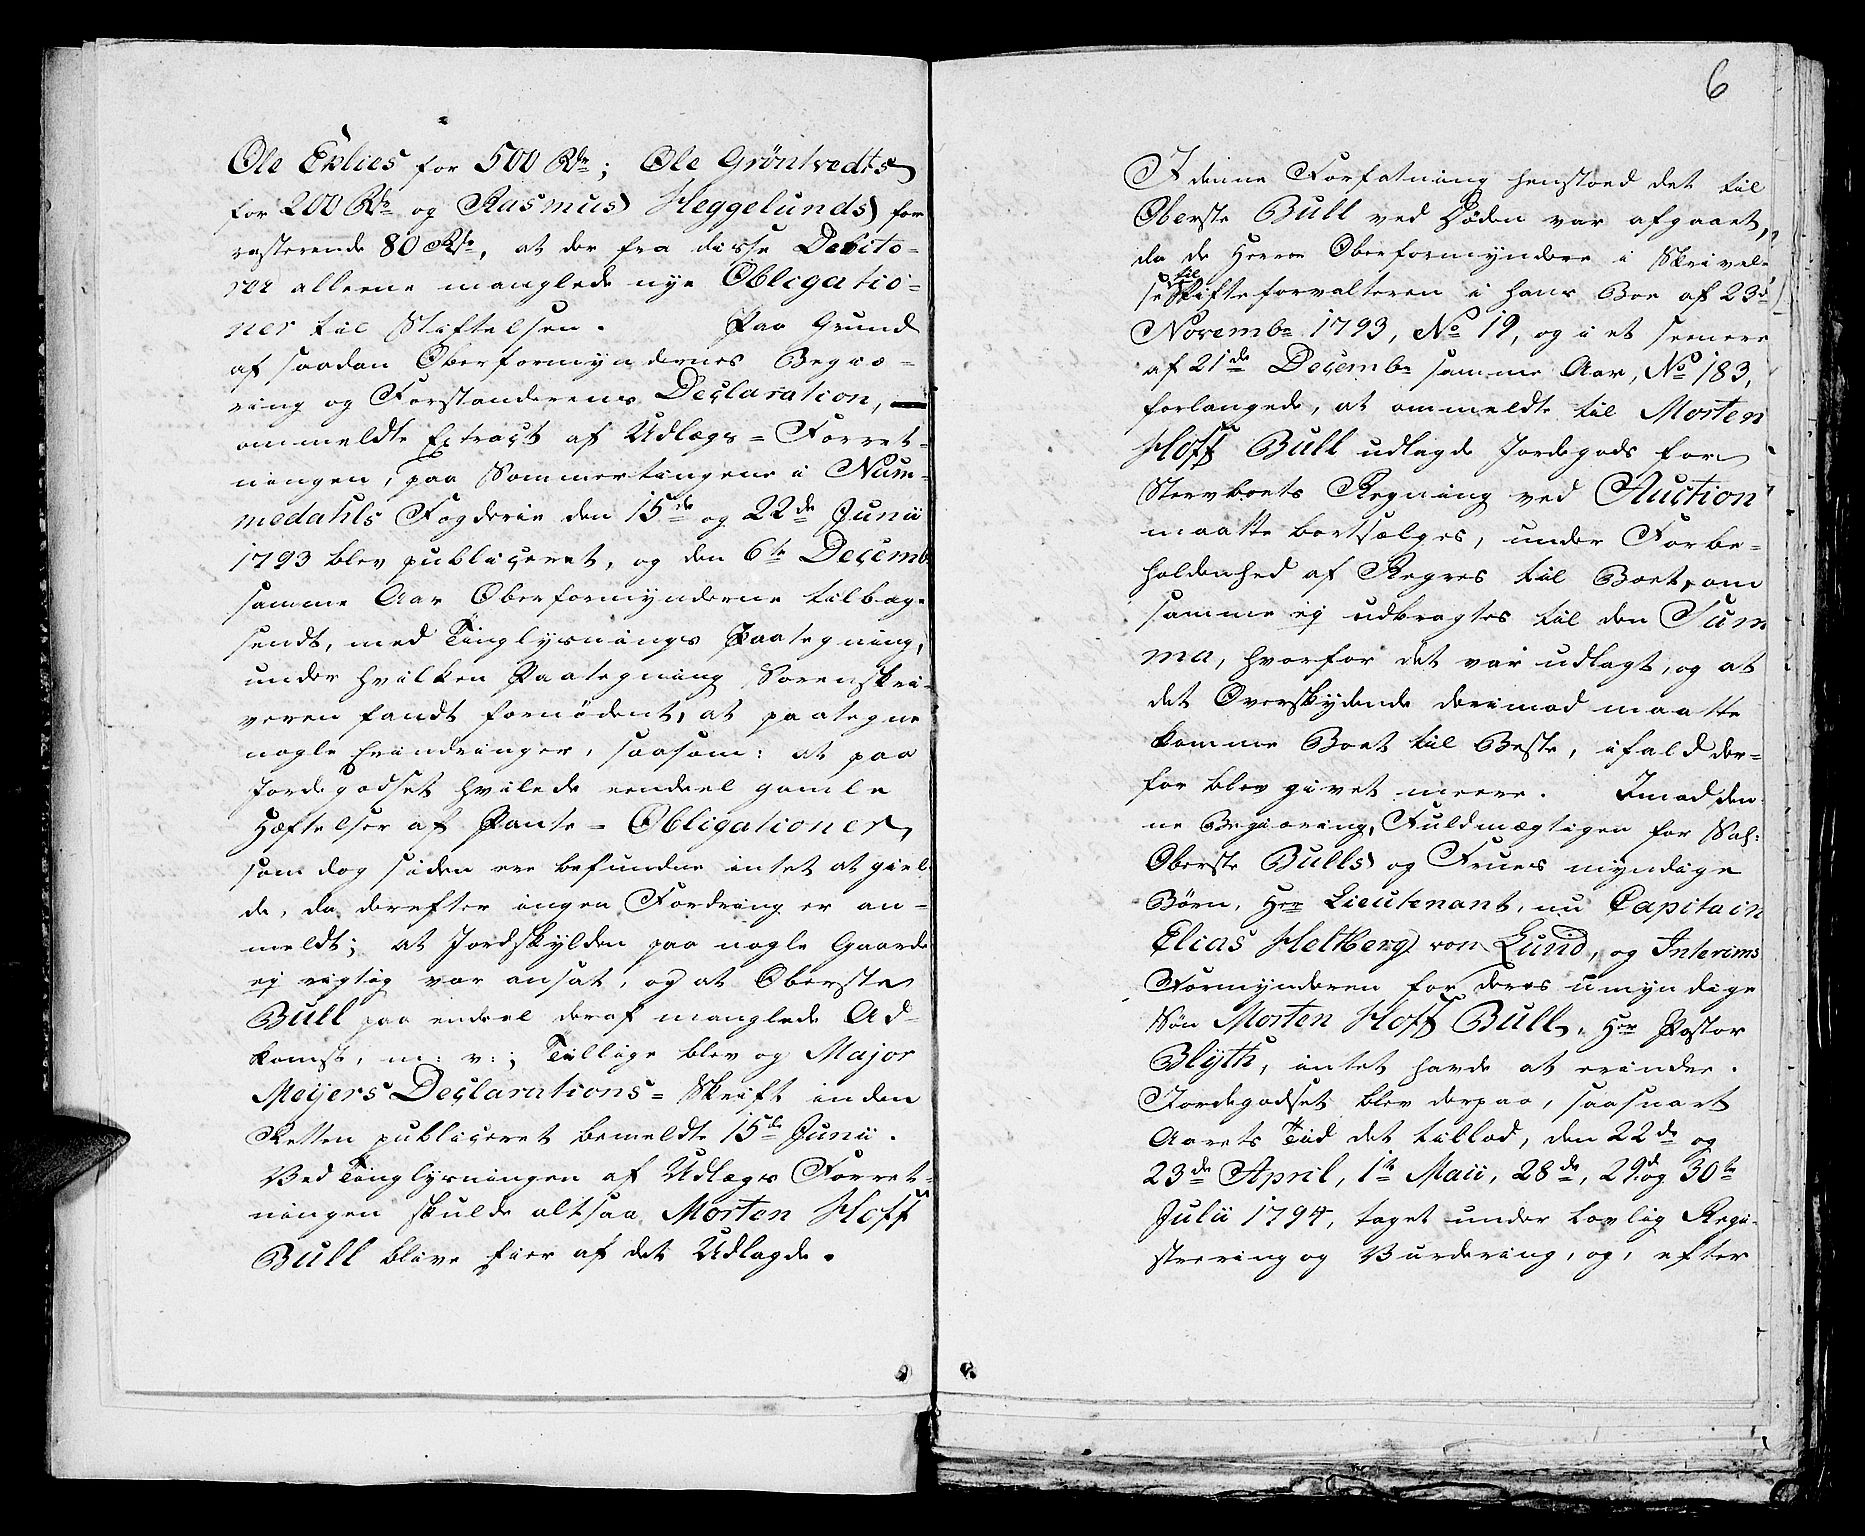 Ole Exlies for 500 Rdr; Ole Gröntvedts
for 200 Rdr og Rasmus Heggelunds for
resterende 80 Rdr, at der fra disse Debito=
rer alleene manglede nye Obligatio=
ner til Stiftelsen. Paa Grund
af saadan Oberformyndernes Begiæ=
ring og Forstanderens Declaration,
ommeldte Extract af Udlægs=Forret=
ningen, paa Sommertingene i Num=
medahls Fogderie den 15de og 22de Junii
1793 blev publiceret, og den 6te Decembr
samme Aar Oberformynderne tilbage
sendt, med Tinglysnings Paategning,
under hvilken Paategning Sorenskri=
veren fandt fornödent, at paategne
nogle Erindringer, saasom: at paa
Jordegodset hvilede eendeel gamle
Hæftelser af Pante=Obligationer,
som dog siden ere befundne intet at giel=
de, da derefter ingen Fordring er an=
meldt; at Jordskylden paa nogle Gaarde
ej rigtig var ansat, og at Oberste
Bull paa endeel deraf manglede Ad=
komst, m: v:; Tillige blev og Major
Meijers Declarations=Skrift inden
Retten publiceret bemeldte 15de Junii.
Ved Tinglysningen af Udlægs Forret=
ningen skulde altsaa Morten Hoff
Bull blive Eier af det Udlagde.
6
I denne Forfatning henstoed det til
Oberste Bull ved Döden var afgaaet,
da de Herrer Oberformyndere i Skrivel=
se til Skifteforvalteren i hans Boe af 23de
Novembr 1793, No 19, og i et seenere
af 21de Decembr samme Aar, No 183,
forlangede, at ommeldte til Morten
Hoff Bull udlagde Jordegods for
Stervboets Regning ved Auction
maatte bortsælges, under Forbe=
holdenhed af Regres til Boet, om
samme ej udbragtes til den Sum
ma, hvorfor det var udlagt, og at
det Overskydende derimod maatte
komme Boet til Beste, ifald der=
for blev givet meere. Imod den=
ne Begiæring, Fuldmægtigen for Sal:
Oberste Bulls og Frues myndige
Börn, Hr Lieutenant, nu Capitain
Elias Heltberg von Lund, og Interims
Formynderen for deres umyndige
Sön Morten Hoff Bull, Hr Pastor
Blyth, intet havde at erindre.
Jordegodset blev derpaa, saasnart
Aarets Tiid det tillod, den 22de og
23de April, 1te Maii, 28de, 29de og 30te
Julii 1794, taget under lovlig Regi=
strering og Vurdering, og, efter